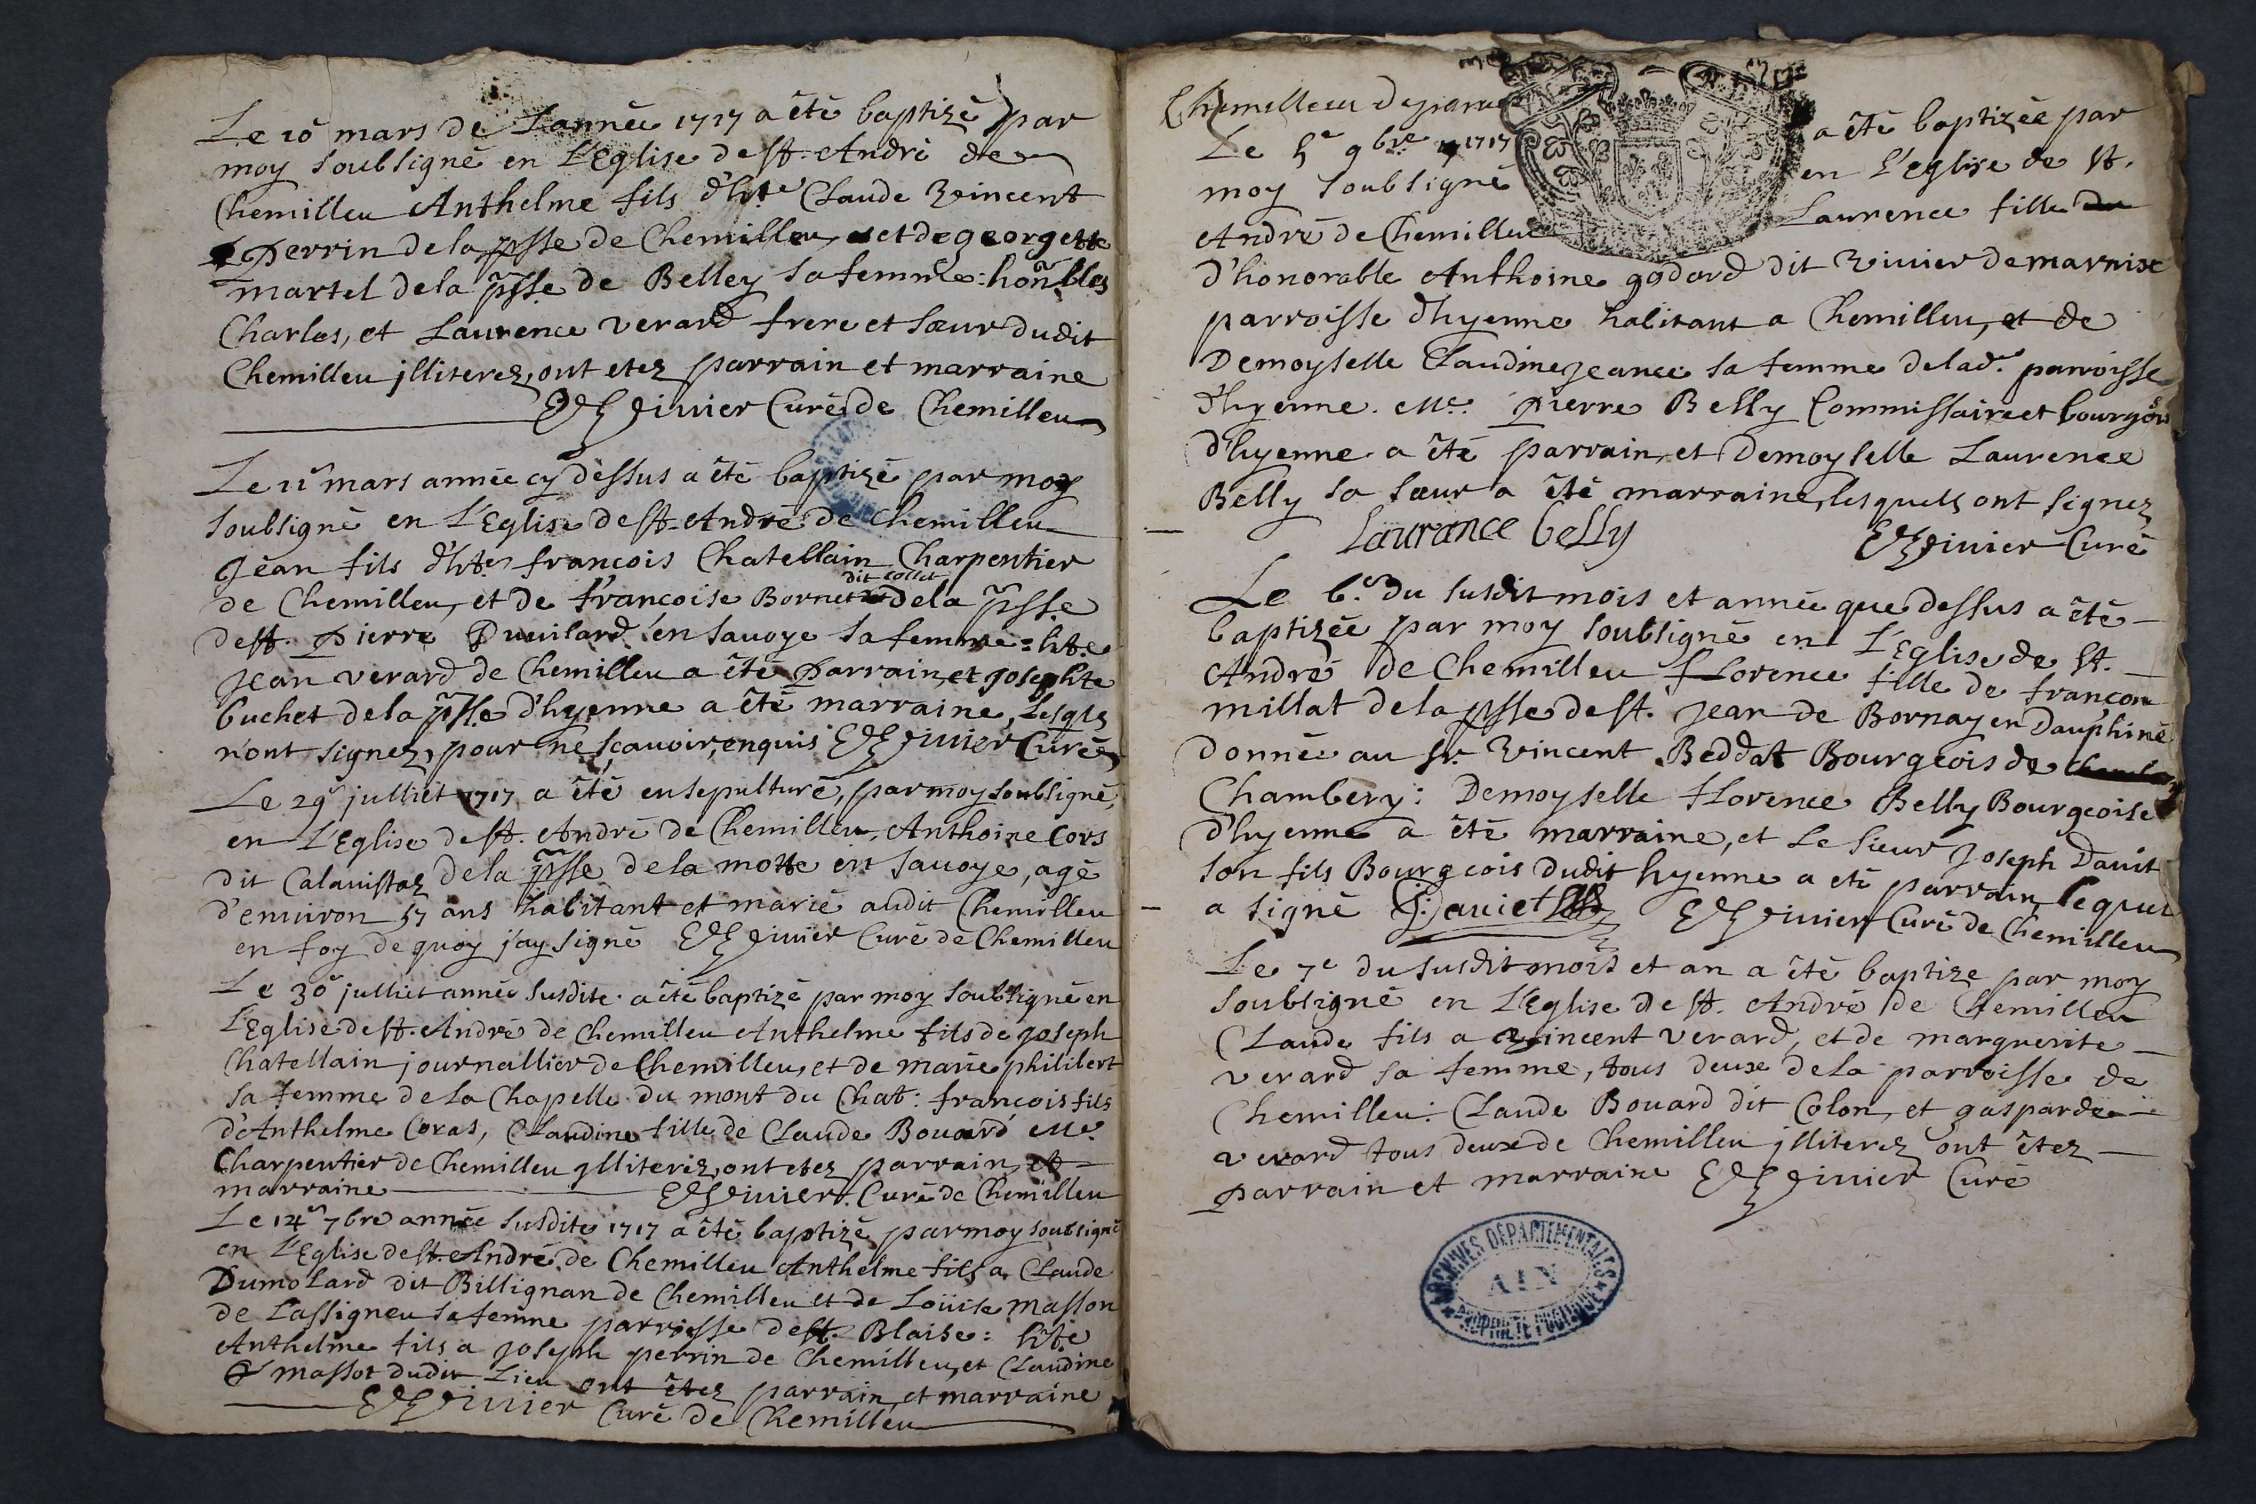 Le 10e mars de L'année 1717 a êtê baptizê par
moy soubsignê en L'Eglise de st. Andrê de
Chemilleu Anthelme fils d'hte Claude Vincent
Perrin de la psse de Chemilleu, et de georgette
martel de la psse. de Belley sa femme: honbles
Charles, et Laurence verard frere et sœur dudit
Chemilleu jlliterez, ont etez parrain et marraine
Vivier Curê de Chemilleu
Le 11e mars année cy dessus a êtê baptizê par moy
soubsignê en L'Eglise de st. Andrê de Chemilleu
Jean fils d'hte. françois Chatellain Charpentier
dit collet
de Chemilleu, et de françoise Bornet de la psse
de st. Pierre en Savoye sa femme: hte.
Jean verard de Chemilleu a êtê Parrain, et Josephte
buchet de la psse d'hyenne a êtê marraine, Lesqls
n'ont signez, pour ne sçavoir, enquis Vivier Curê
Le 29e julliet 1717 a êtê ensepulturê, par moy soubsignê,
en L'Eglise de st. Andrê de Chemilleu, Anthoine Cors
dit de la psse de la motte en Savoye, agê
d'environ 57 ans habitant et mariê audit Chemilleu
en foy de quoy j'ay signê Vivier Curê de Chemilleu
Le 30e julliet année susdite a êtê baptizê par moy soubsignê en
L'Eglise de st. Andrê de Chemilleu Anthelme fils de Joseph
Chatellain journallier de Chemilleu, et de marie philibert
sa femme de La Chapelle du mont du Chat: françois fils
d'Anthelme Coras, Claudine fille de Claude Bouard Me.
Charpentier de Chemilleu jlliterez, ont etez parrain, et
marraine Vivier Curê de Chemilleu
Le 14e 7bre année susdite 1717 a êtê baptizê par moy soubsignê
en L'Eglise de st. Andrê de Chemilleu Anthelme fils a Claude
Dumolard dit Billignan de Chemilleu et de Loüise masson
de Lassigneu sa femme parroisse de st. Blaise: hte
Anthelme fils a Joseph perrin de Chemilleu, et Claudine
massot dudit Lieu ont êtez parrain, et marraine
Vivier Curê de Chemilleu
Chemilleu
Le 5e 9bre 1717 a êtê baptizêe par
moy soubsignê en L'Eglise de st.
Andrê de Chemilleu Laurence fille du
d'honorable Anthoine godard dit Vivier de marnix
parroisse d'hyenne habitant a Chemilleu, et de
Demoyselle Claudine sa femme de lad. parroisse
d'hyenne. Me. Pierre Belly Commissaire et bourgois
d'hyenne a êtê parrain, et Demoyselle Laurence
Belly sa sœur a êtê marraine, lesquels ont signez
Laurance belly Vivier Curê
Le 6e. du susdit mois et année que dessus a êtê
baptizêe par moy soubsignê en L'Eglise de st.
Andrê de Chemilleu fLorence fille de françon
millat de la psse de st. Jean de Bornay en Dauphinê
donnée au sr. Vincent Beddat Bourgeois de
Chambery: Demoyselle fLorence Belly Bourgeoise
d'hyenne a êtê marraine, et Le sieur Joseph Davit
son fils Bourgeois dudit hyenne a etê parrain, lequel
a signê J: Daviet Vivier Curê de Chemilleu
Le 7e du susdit mois et an a êtê baptize par moy
soubsignê en L'Eglise de st. Andrê de Chemilleu
CLaude fils a Vincent verard, et de marguerite
verard sa femme, tous deux de la parroisse de
Chemilleu: CLaude Bouard dit Colon, et gasparde
verard tous deux de Chemilleu jlliterez ont êtez
parrain et marraine Vivier Curê
ARCHIVES DÉPARTEMENTALES
AIN
PROPRIÉTÉ PUBLIQUE